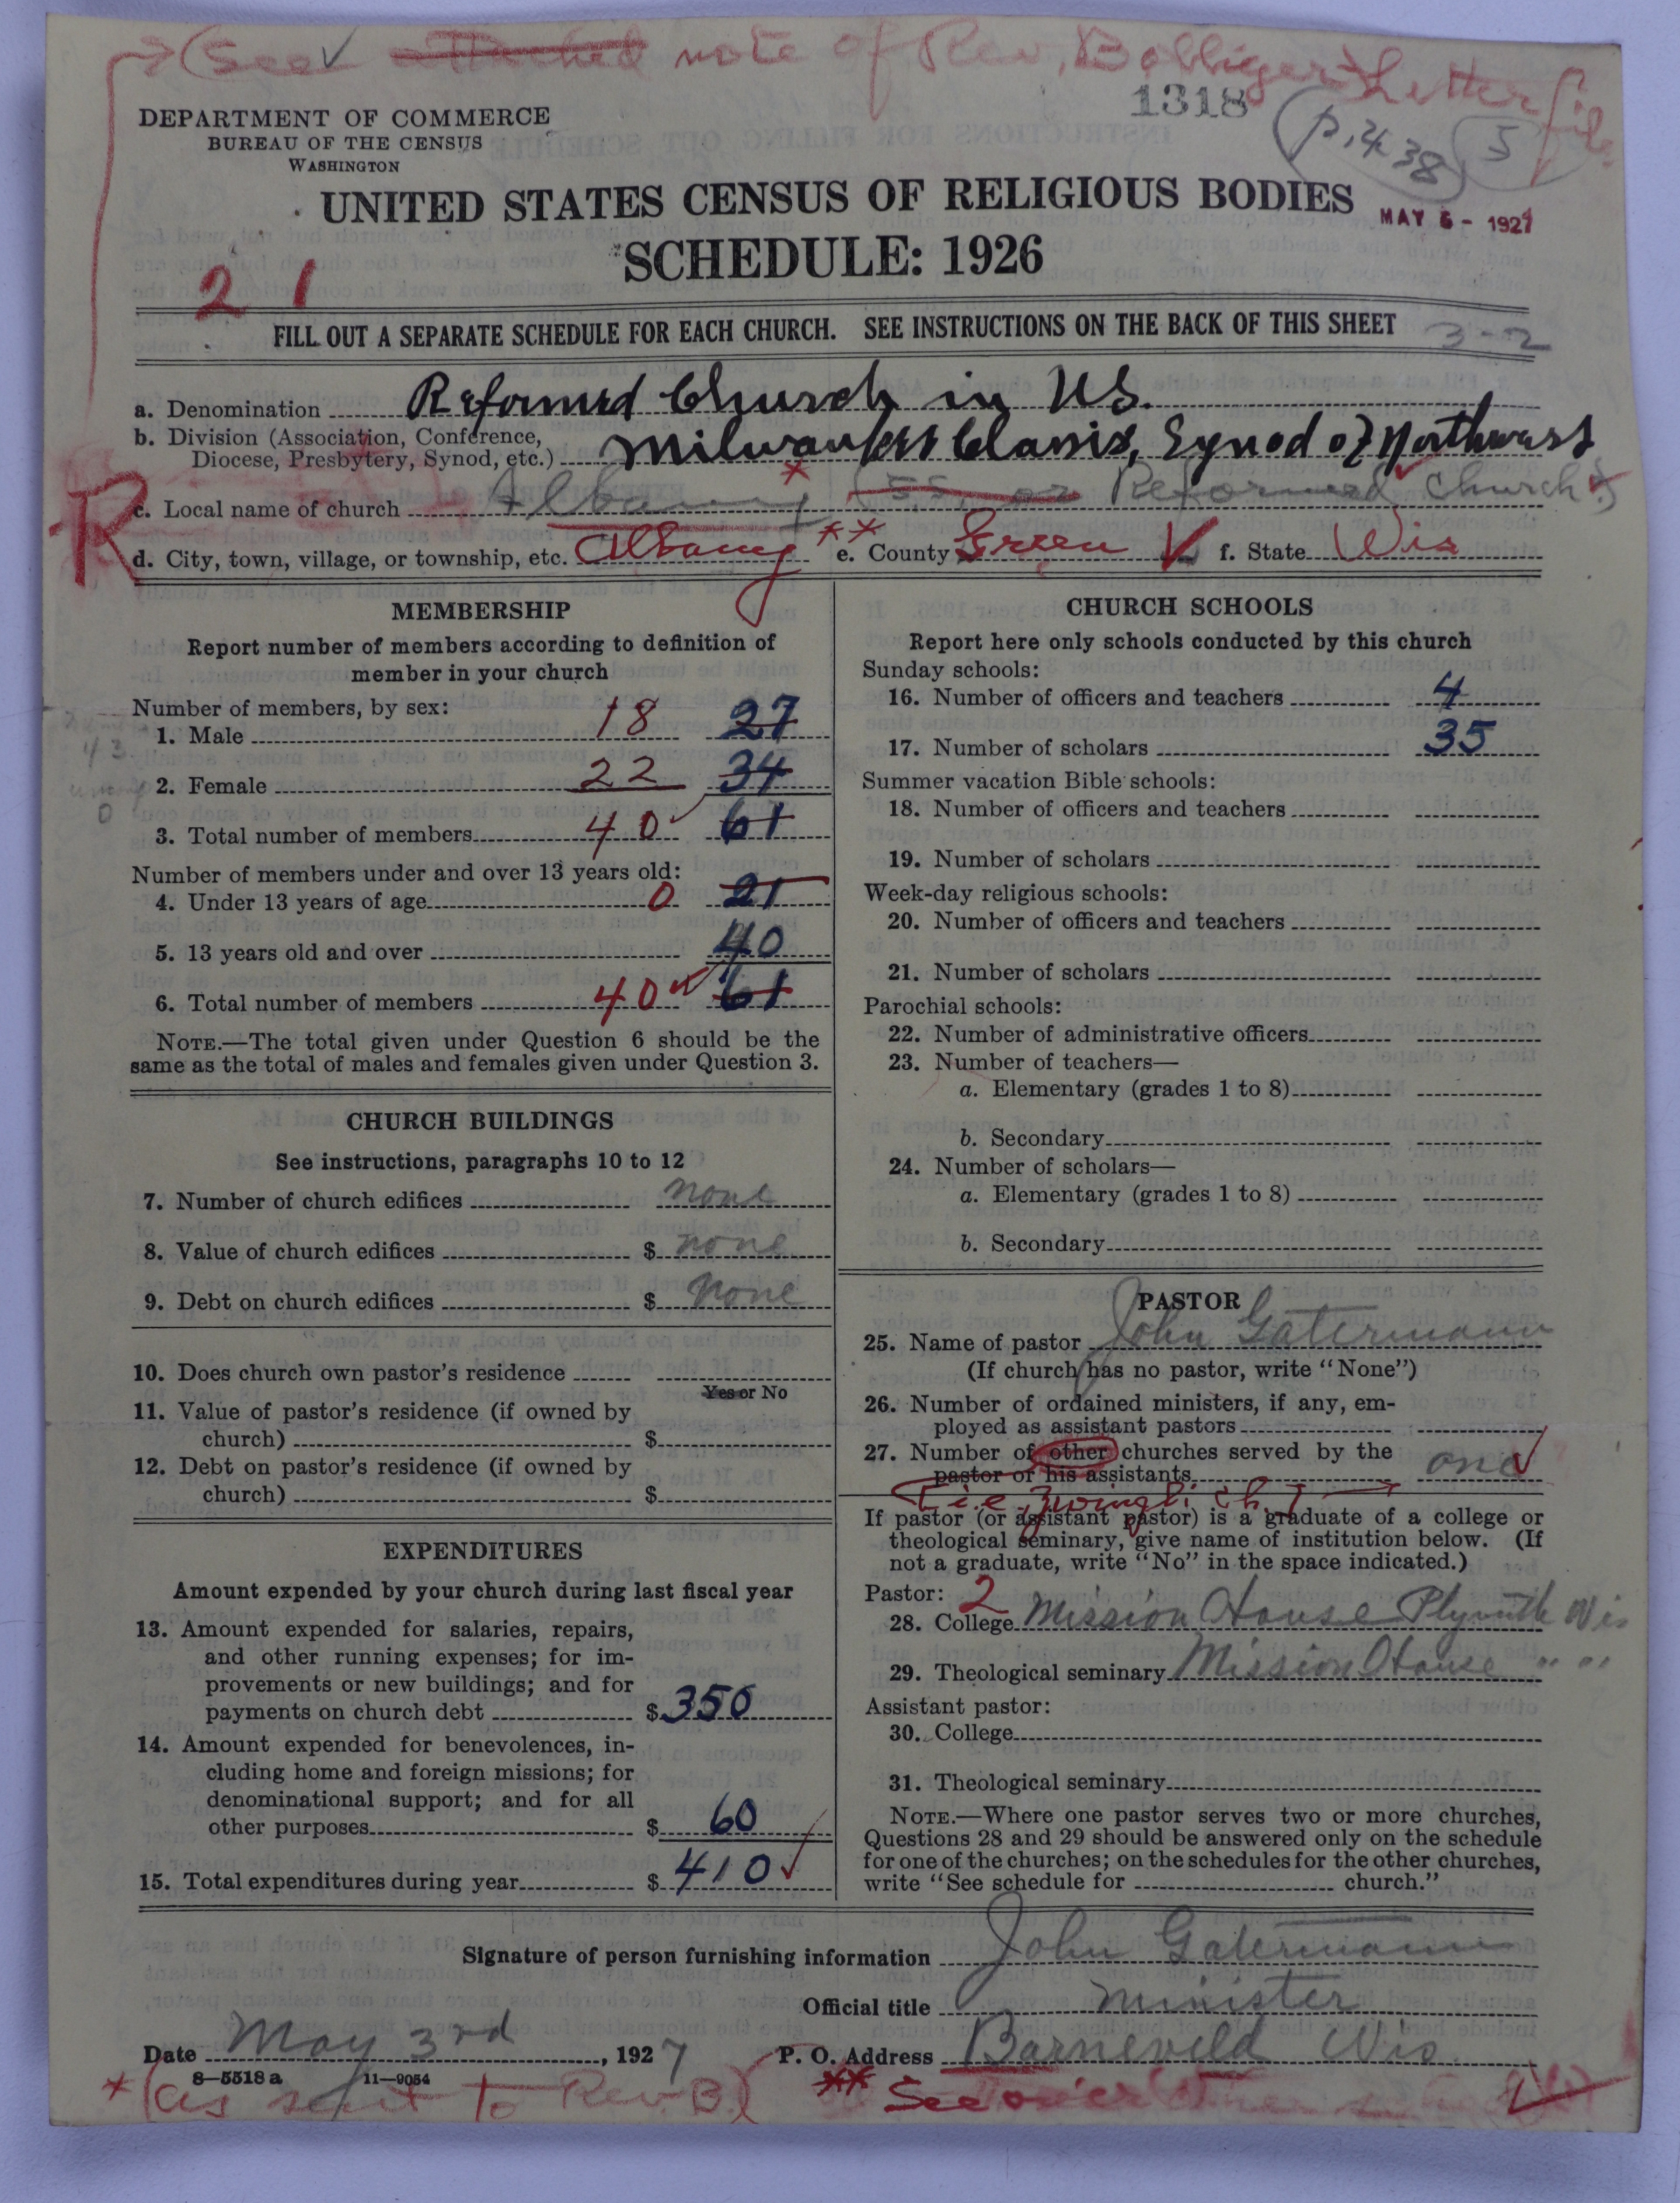 (See attached note of Rev. Bolliger Letter file
1318
(p. 438) 5
DEPARTMENT OF COMMERCE
BUREAU OF THE CENSUS
WASHINGTON
UNITED STATES CENSUS OF RELIGIOUS BODIES
MAY 6 - 1927
SCHEDULE: 1926
21
FILL OUT A SEPARATE SCHEDULE FOR EACH CHURCH. SEE INSTRUCTIONS ON THE BACK OF THIS SHEET
3-2
a. Denomination Reformed Church in US.
b. Division (Association, Conference, Diocese, Presbytery, Synod, etc.) Milwaukee Classis, Synod of Northwest
R
c. Local name of church Albany * Reformed Church
d. City, town, village, or township, etc. Albany ** e. County Green f. State Wis
MEMBERSHIP
Report number of members according to definition of
member in your church
Number of members, by sex:
1. Male 18 27
2. Female 22 34
3. Total number of members 40 61
Number of members under and over 13 years old:
4. Under 13 years of age 0 21
5. 13 years old and over 40
6. Total number of members 40 61
NOTE.—The total given under Question 6 should be the
same as the total of males and females given under Question 3.
CHURCH BUILDINGS
See instructions, paragraphs 10 to 12
7. Number of church edifices none
8. Value of church edifices $ none
9. Debt on church edifices $ none
10. Does church own pastor's residence
Yes or No
11. Value of pastor's residence (if owned by
church) $
12. Debt on pastor's residence (if owned by
church) $
EXPENDITURES
Amount expended by your church during last fiscal year
13. Amount expended for salaries, repairs,
and other running expenses; for im-
provements or new buildings; and for
payments on church debt $ 350
14. Amount expended for benevolences, in-
cluding home and foreign missions; for
denominational support; and for all
other purposes $ 60
15. Total expenditures during year $ 410
CHURCH SCHOOLS
Report here only schools conducted by this church
Sunday schools:
16. Number of officers and teachers 4
17. Number of scholars 35
Summer vacation Bible schools:
18. Number of officers and teachers
19. Number of scholars
Week-day religious schools:
20. Number of officers and teachers
21. Number of scholars
Parochial schools:
22. Number of administrative officers
23. Number of teachers—
a. Elementary (grades 1 to 8)
b. Secondary
24. Number of scholars—
a. Elementary (grades 1 to 8)
b. Secondary
PASTOR
25. Name of pastor John Gatermann
(If church has no pastor, write "None")
26. Number of ordained ministers, if any, em-
ployed as assistant pastors
27. Number of other churches served by the
pastor or his assistants one
[i.e. Zwingli ch.]
If pastor (or assistant pastor) is a graduate of a college or
theological seminary, give name of institution below. (If
not a graduate, write "No" in the space indicated.)
Pastor: 2
28. College Mission House Plymouth Wis
29. Theological seminary Mission House " "
Assistant pastor:
30. College
31. Theological seminary
NOTE.—Where one pastor serves two or more churches,
Questions 28 and 29 should be answered only on the schedule
for one of the churches; on the schedules for the other churches,
write "See schedule for church."
Signature of person furnishing information John Gatermann
Official title Minister
Date May 3rd, 1927 P. O. Address Barneveld Wis
8—5518 a 11—9054
* (as sent to Rev. B.) ** See